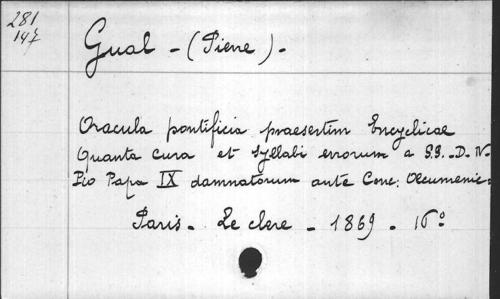 281
147
Gual - (Pierre).
Oracula pontificia praesertim Encyclicae
Quanta cura et Syllabi errorum a S.S.-D.N.
Pio Papa IX damnatorum ante Conc: Oecumenic.
Paris. Le clere - 1869 - 16°